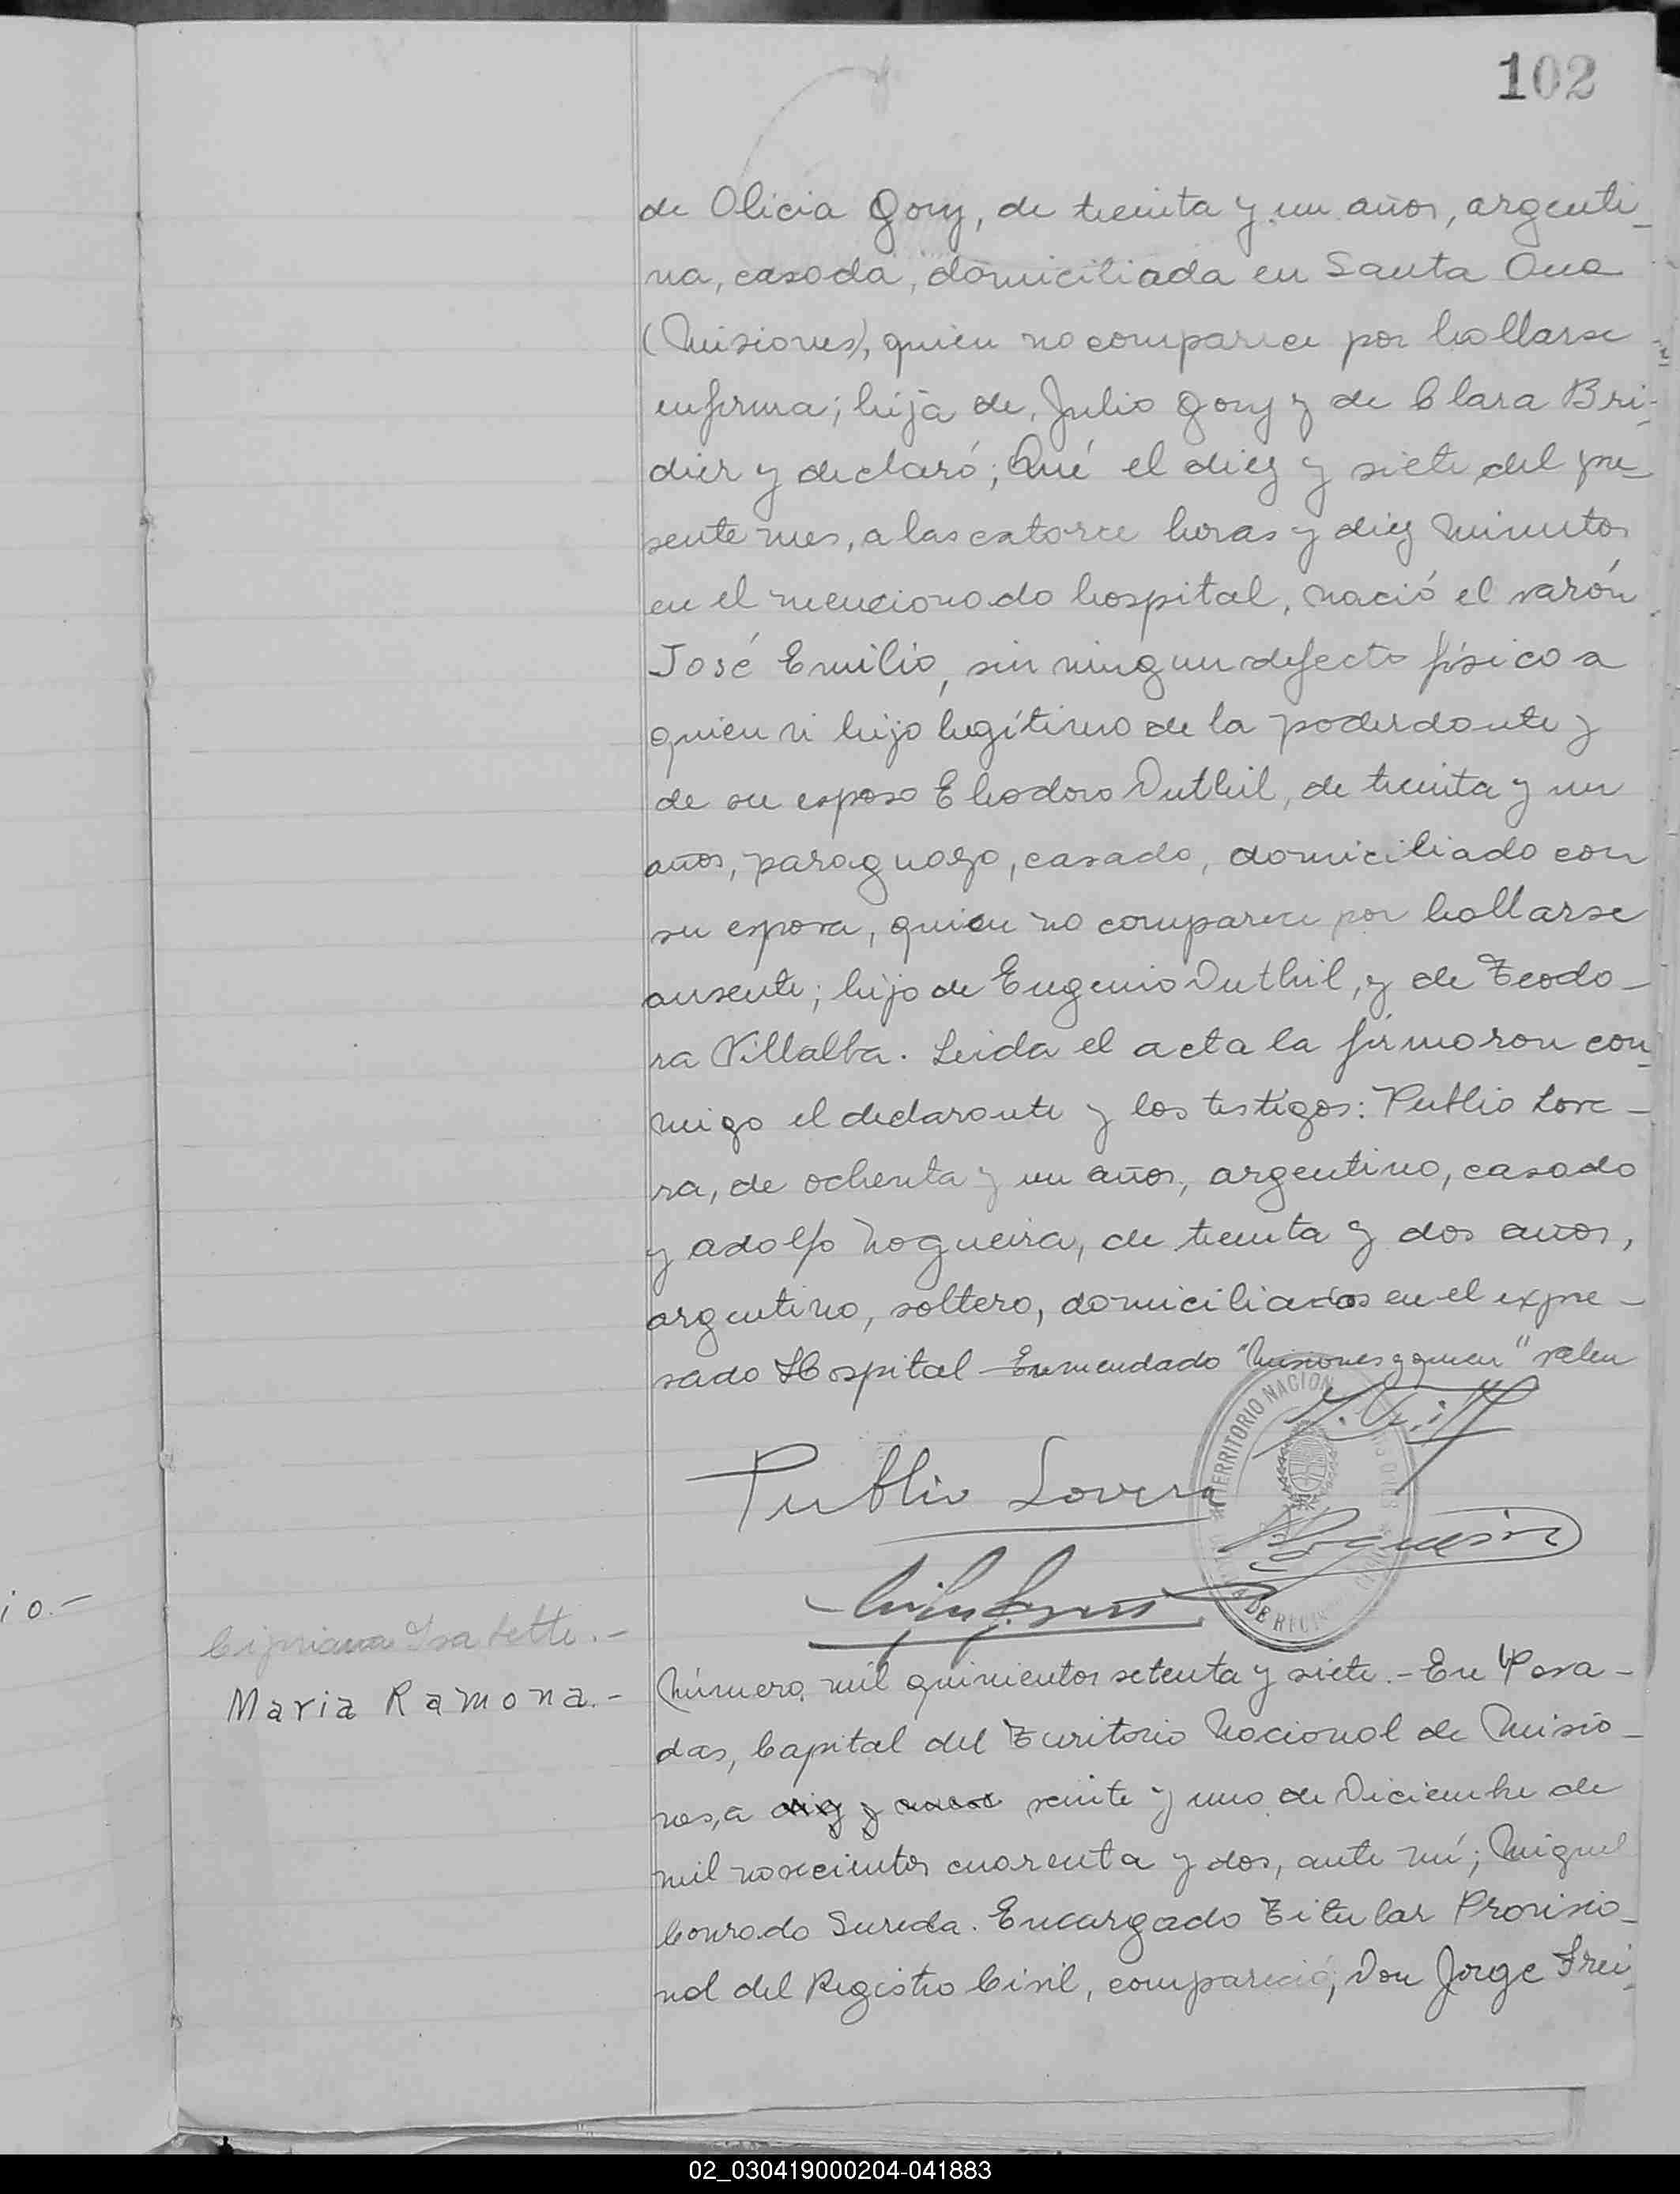 102
de Olicia Gouy, de treinta y un años, argenti_
na, casada, domiciliada en Santa Ana
(Misiones), quien no comparece por hallarse
enferma; hija de Julio Gouy y de Clara Bri-
dier y declaró; Qué el diez y siete del pre_
sente mes, a las catorce horas y diez minutos
en el mencionado hospital, nació el varón
José Emilio, sin ningun defecto físico a
quien vi hijo legítimo de la poderdante y
de su esposo Eleodoro Duthil, de treinta y un
años, paraguayo, casado, domiciliado con
su esposa, quien no comparece por hallarse
ausente; hijo de Eugenio Duthil, y de Teodo_
ra Villalba. Leida el acta la firmaron con_
migo el declarante y los testigos: Publio Love_
ra, de ochenta y un años, argentino, casado
y Adolfo Nogueira, de treinta y dos años,
argentino, soltero, domiciliados en el expre_
sado Hospital - Enmendado "Misiones y quien" valen
TERRITORIO NACION
Publio Lovera
Nogueira
io.-
Cipriana Isabette.-
Maria Ramona.-
Número mil quinientos setenta y siete.- En Posa_
das, Capital del Territorio Nacional de Misio_
nes, a diez y nueve veinte y uno de Diciembre de
mil novecientos cuarenta y dos, ante mí; Miguel
Conrado Sureda. Encargado Titular Provisio_
nal del Registro Civil, compareció, Don Jorge Frei_
02_030419000204-041883